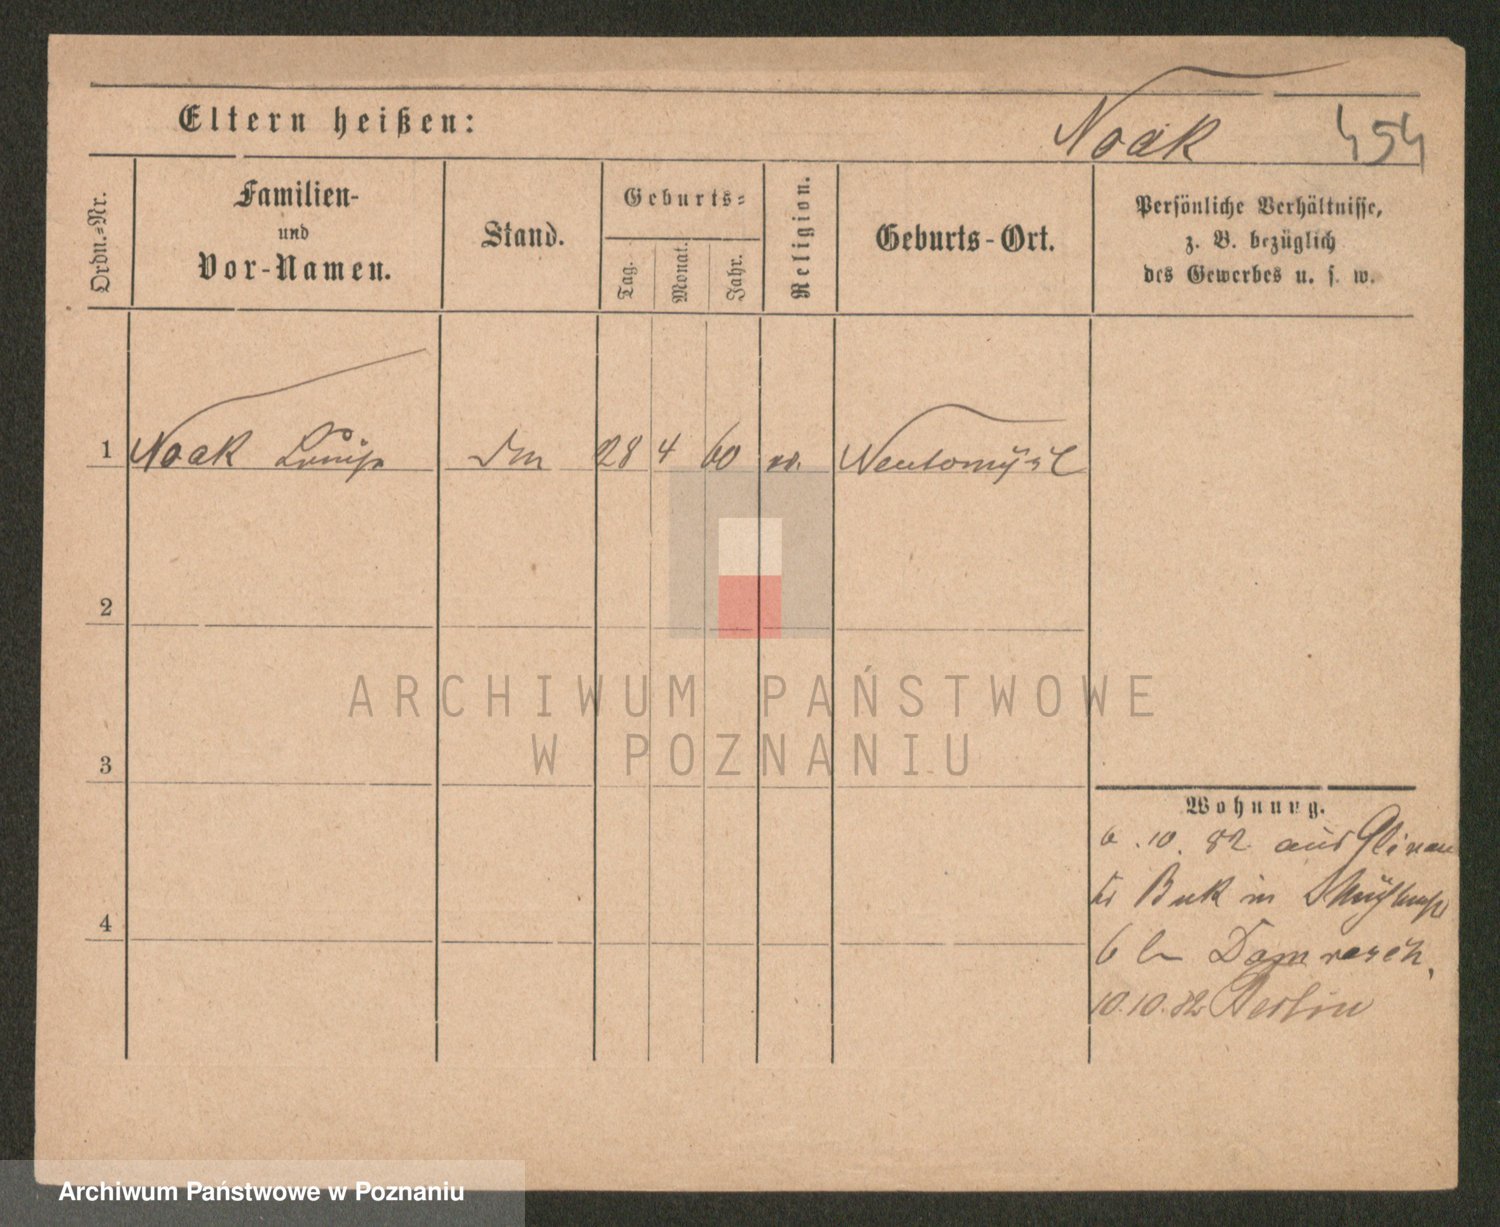 Eltern heißen:
Noak 454
Ordn.=Nr.
Familien-
und
Vor-Namen.
Stand.
Geburts=
Tag.
Monat.
Jahr.
Religion.
Geburts-Ort.
Persönliche Verhältnisse,
z. B. bezüglich
des Gewerbes u. s. w.
1 Noak Louise 28 4 60 Neutomysl
2
3
4
ARCHIWUM PAŃSTWOWE
W POZNANIU
Wohnung.
6.10.82 aus Glinau
Buk in
6 Damrasch,
10.10.82 Berlin
Archiwum Państwowe w Poznaniu